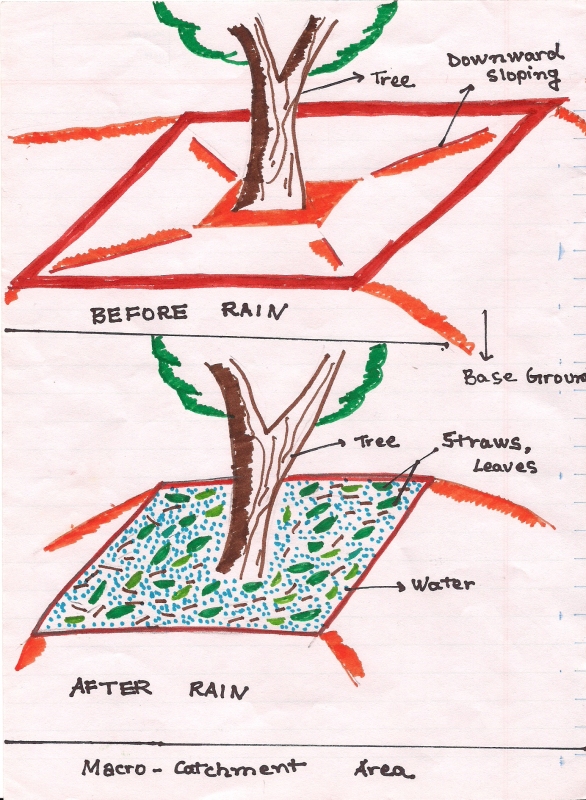 Downward
Sloping
Tree
BEFORE RAIN
Base Groun
Tree
Straws,
Leaves
Water
AFTER RAIN
Macro-Catchment Area